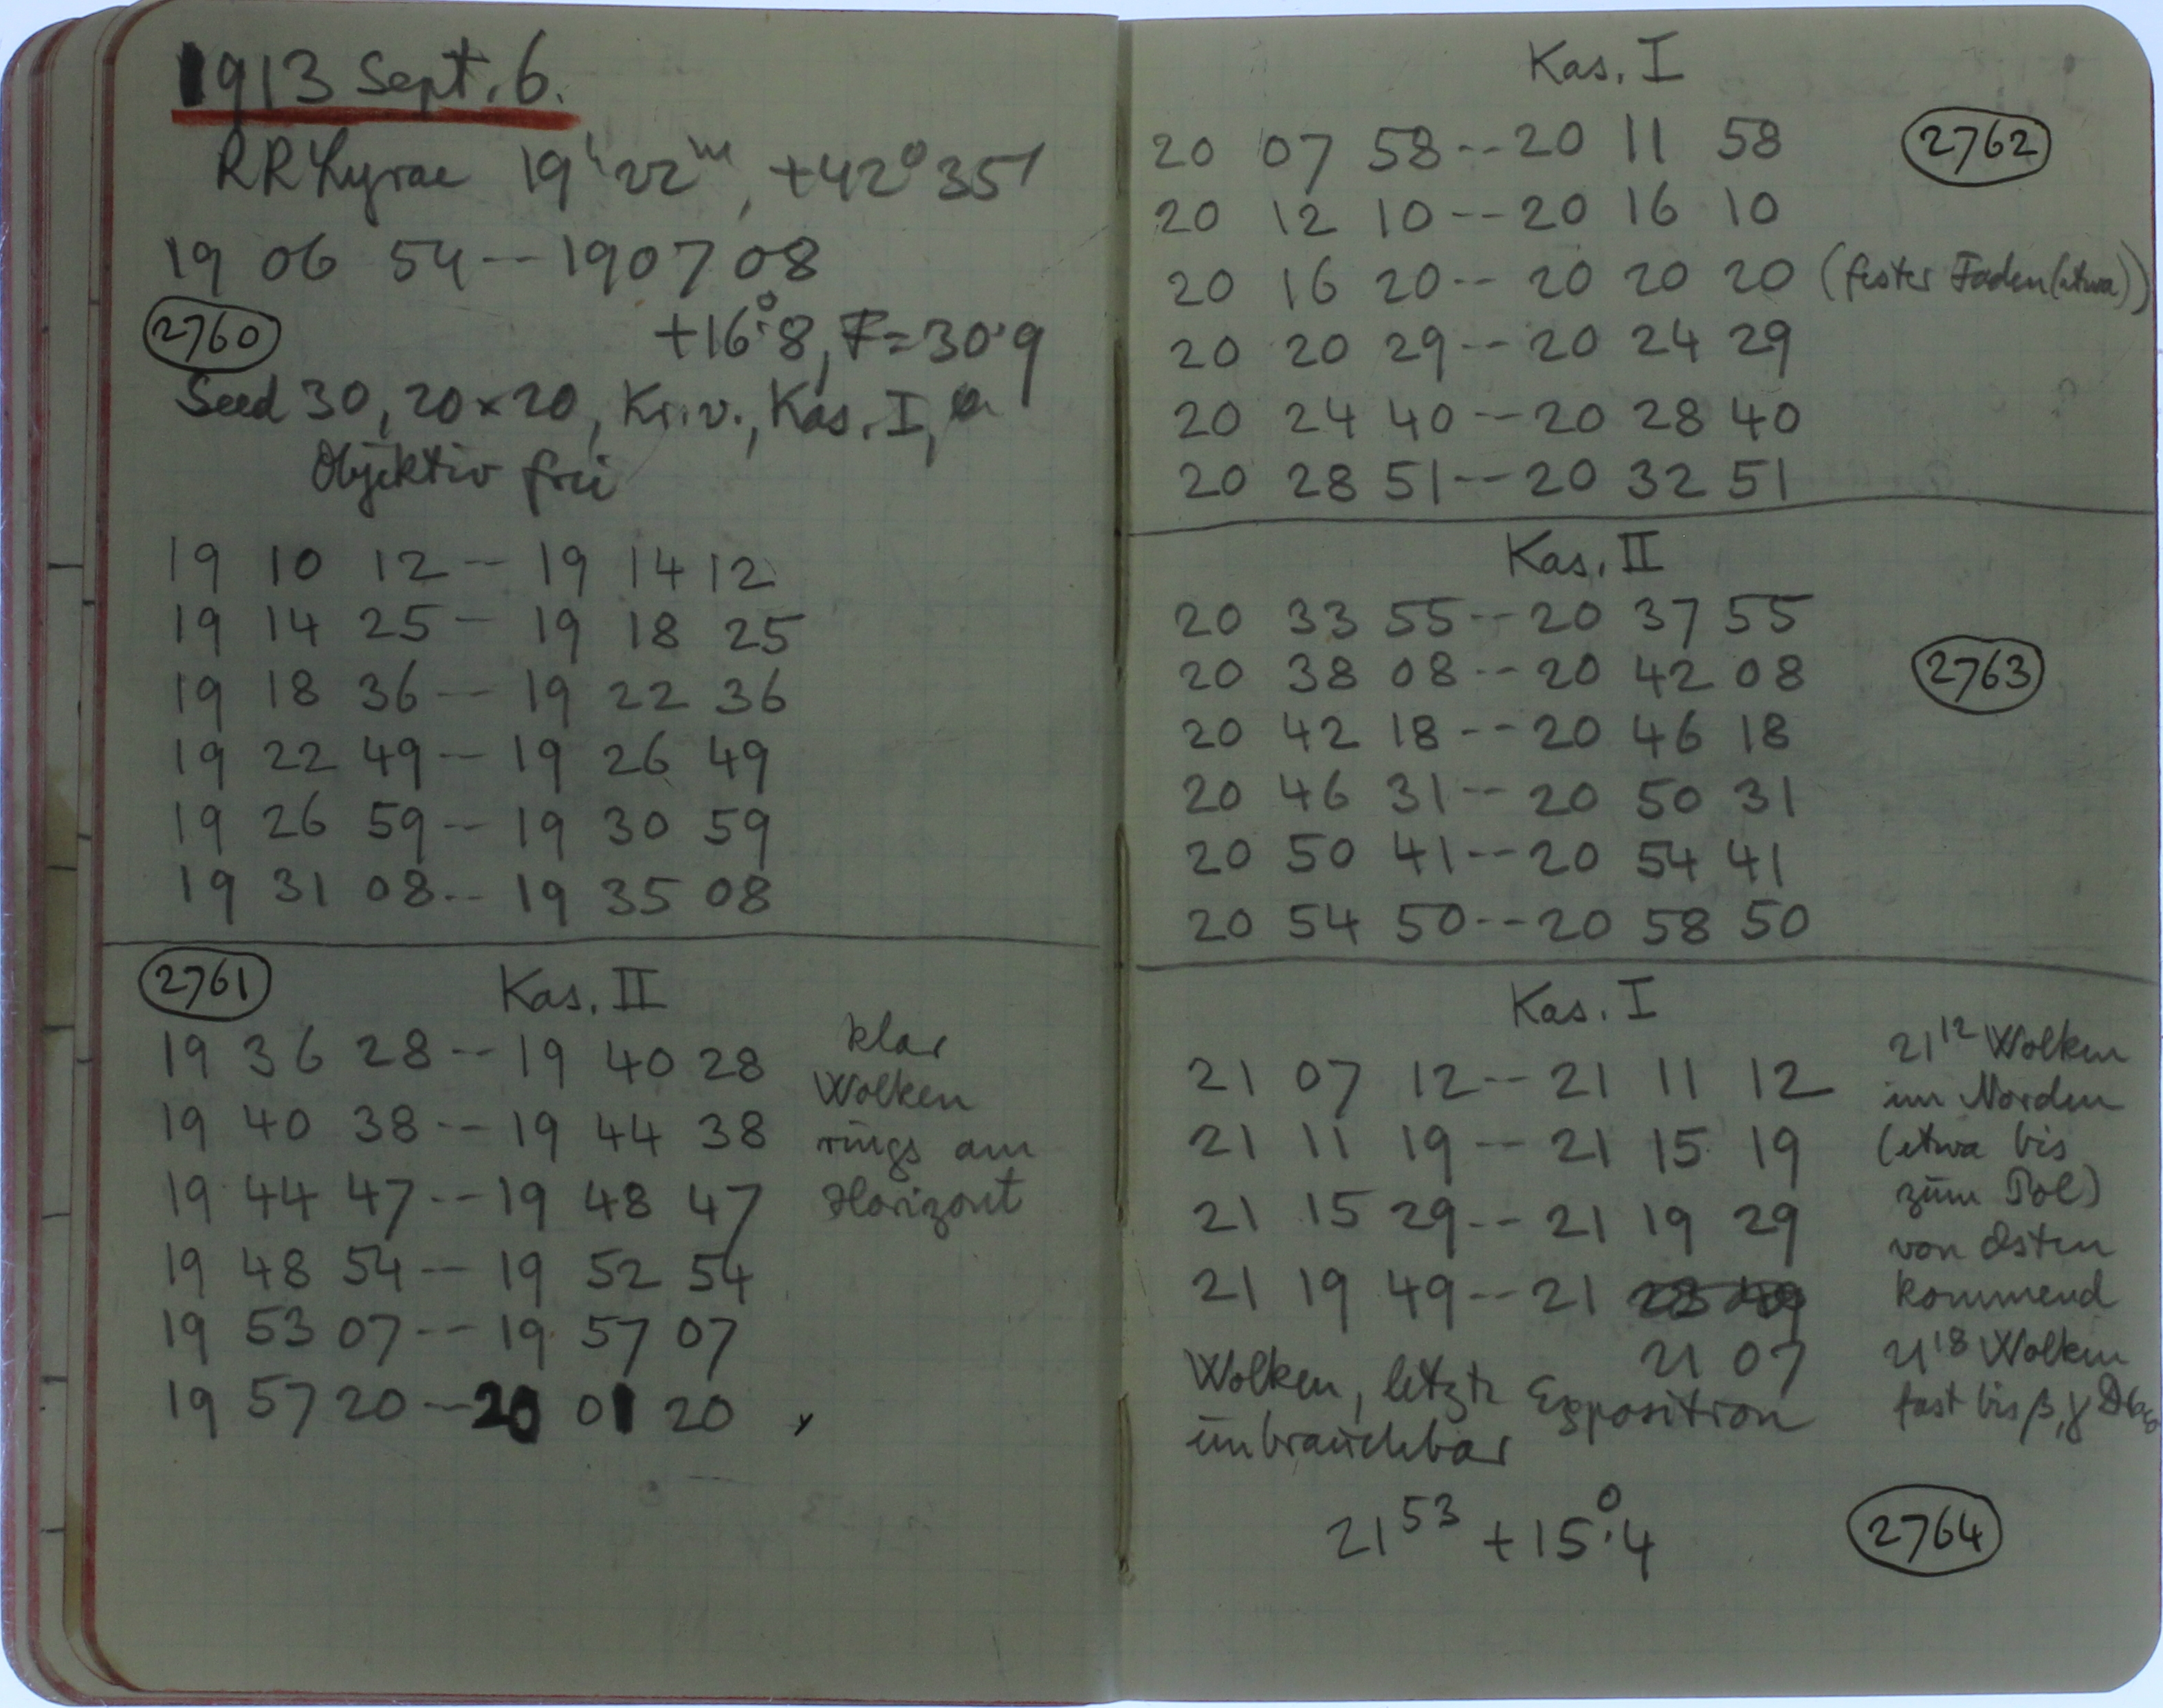 1913 Sept. 6.
RR Lyrae 19h 22m, +42° 35'
19 06 54 -- 19 07 08
2760 +16°.8, F=30.9
Seed 30, 20×20, Kr. v., Kas. I,
Objektiv frei
19 10 12 -- 19 14 12
19 14 25 -- 19 18 25
19 18 36 -- 19 22 36
19 22 49 -- 19 26 49
19 26 59 -- 19 30 59
19 31 08 -- 19 35 08
2761 Kas. II
19 36 28 -- 19 40 28
19 40 38 -- 19 44 38
19 44 47 -- 19 48 47
19 48 54 -- 19 52 54
19 53 07 -- 19 57 07
19 57 20 -- 20 01 20
klar
Wolken
rings am
Horizont
Kas. I
20 07 58 -- 20 11 58 2762
20 12 10 -- 20 16 10
20 16 20 -- 20 20 20 (fester Faden (etwa))
20 20 29 -- 20 24 29
20 24 40 -- 20 28 40
20 28 51 -- 20 32 51
Kas. II
20 33 55 -- 20 37 55
20 38 08 -- 20 42 08 2763
20 42 18 -- 20 46 18
20 46 31 -- 20 50 31
20 50 41 -- 20 54 41
20 54 50 -- 20 58 50
Kas. I
21 07 12 -- 21 11 12
21 11 19 -- 21 15 19
21 15 29 -- 21 19 29
21 19 49 -- 21 23 49
21 07
Wolken, letzte Exposition
unbrauchbar
21 12 Wolken
im Norden
(etwa bis
zum Pol)
von Osten
kommend
21 18 Wolken
fast bis β, γ
21 53 +15°.4 2764